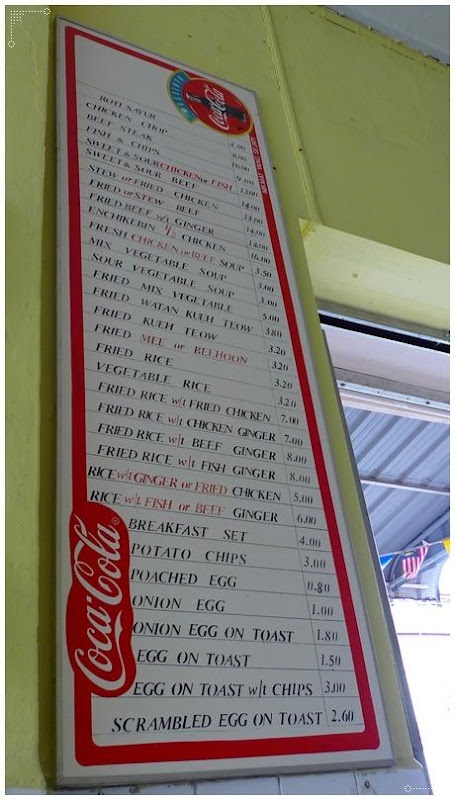 Coca-Cola
ROTI SAYUR 4.00
CHICKEN CHOP 8.00
BEEF STEAK 16.00
FISH & CHIPS 9.00
SWEET & SOUR CHICKEN or FISH 13.00
SWEET & SOUR BEEF 14.00
STEW or FRIED CHICKEN 13.00
FRIED or STEW BEEF 14.00
FRIED BEEF w/t GINGER 14.00
ENCHIKEBIN 1/2 CHICKEN 16.00
FRESH CHICKEN or BEEF SOUP 3.50
MIX VEGETABLE SOUP 3.00
SOUR VEGETABLE SOUP 3.00
FRIED MIX VEGETABLE 5.00
FRIED WATAN KUEH TEOW 3.80
FRIED KUEH TEOW 3.20
FRIED MEE or BEEHOON 3.20
FRIED RICE 3.20
VEGETABLE RICE 3.20
FRIED RICE w/t FRIED CHICKEN 7.00
FRIED RICE w/t CHICKEN GINGER 7.00
FRIED RICE w/t BEEF GINGER 8.00
FRIED RICE w/t FISH GINGER 8.00
RICE w/t GINGER or FRIED CHICKEN 5.00
RICE w/t FISH or BEEF GINGER 6.00
BREAKFAST SET 4.00
POTATO CHIPS 3.00
POACHED EGG 0.80
ONION EGG 1.00
ONION EGG ON TOAST 1.80
EGG ON TOAST 1.50
EGG ON TOAST w/t CHIPS 3.00
SCRAMBLED EGG ON TOAST 2.60
Coca-Cola